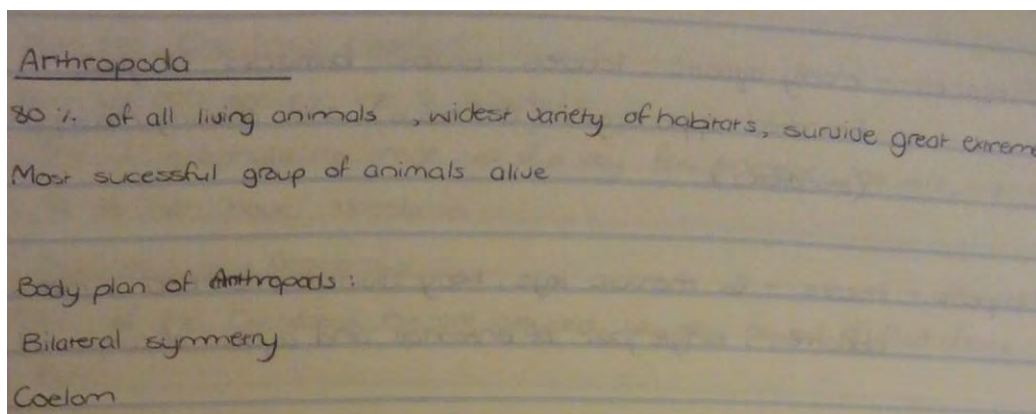 Arthropoda
80% of all living animals, widest variety of habitats, survive great extrem
Most sucessful group of animals alive
Body plan of Arthropods:
Bilateral symmetry
Coelom